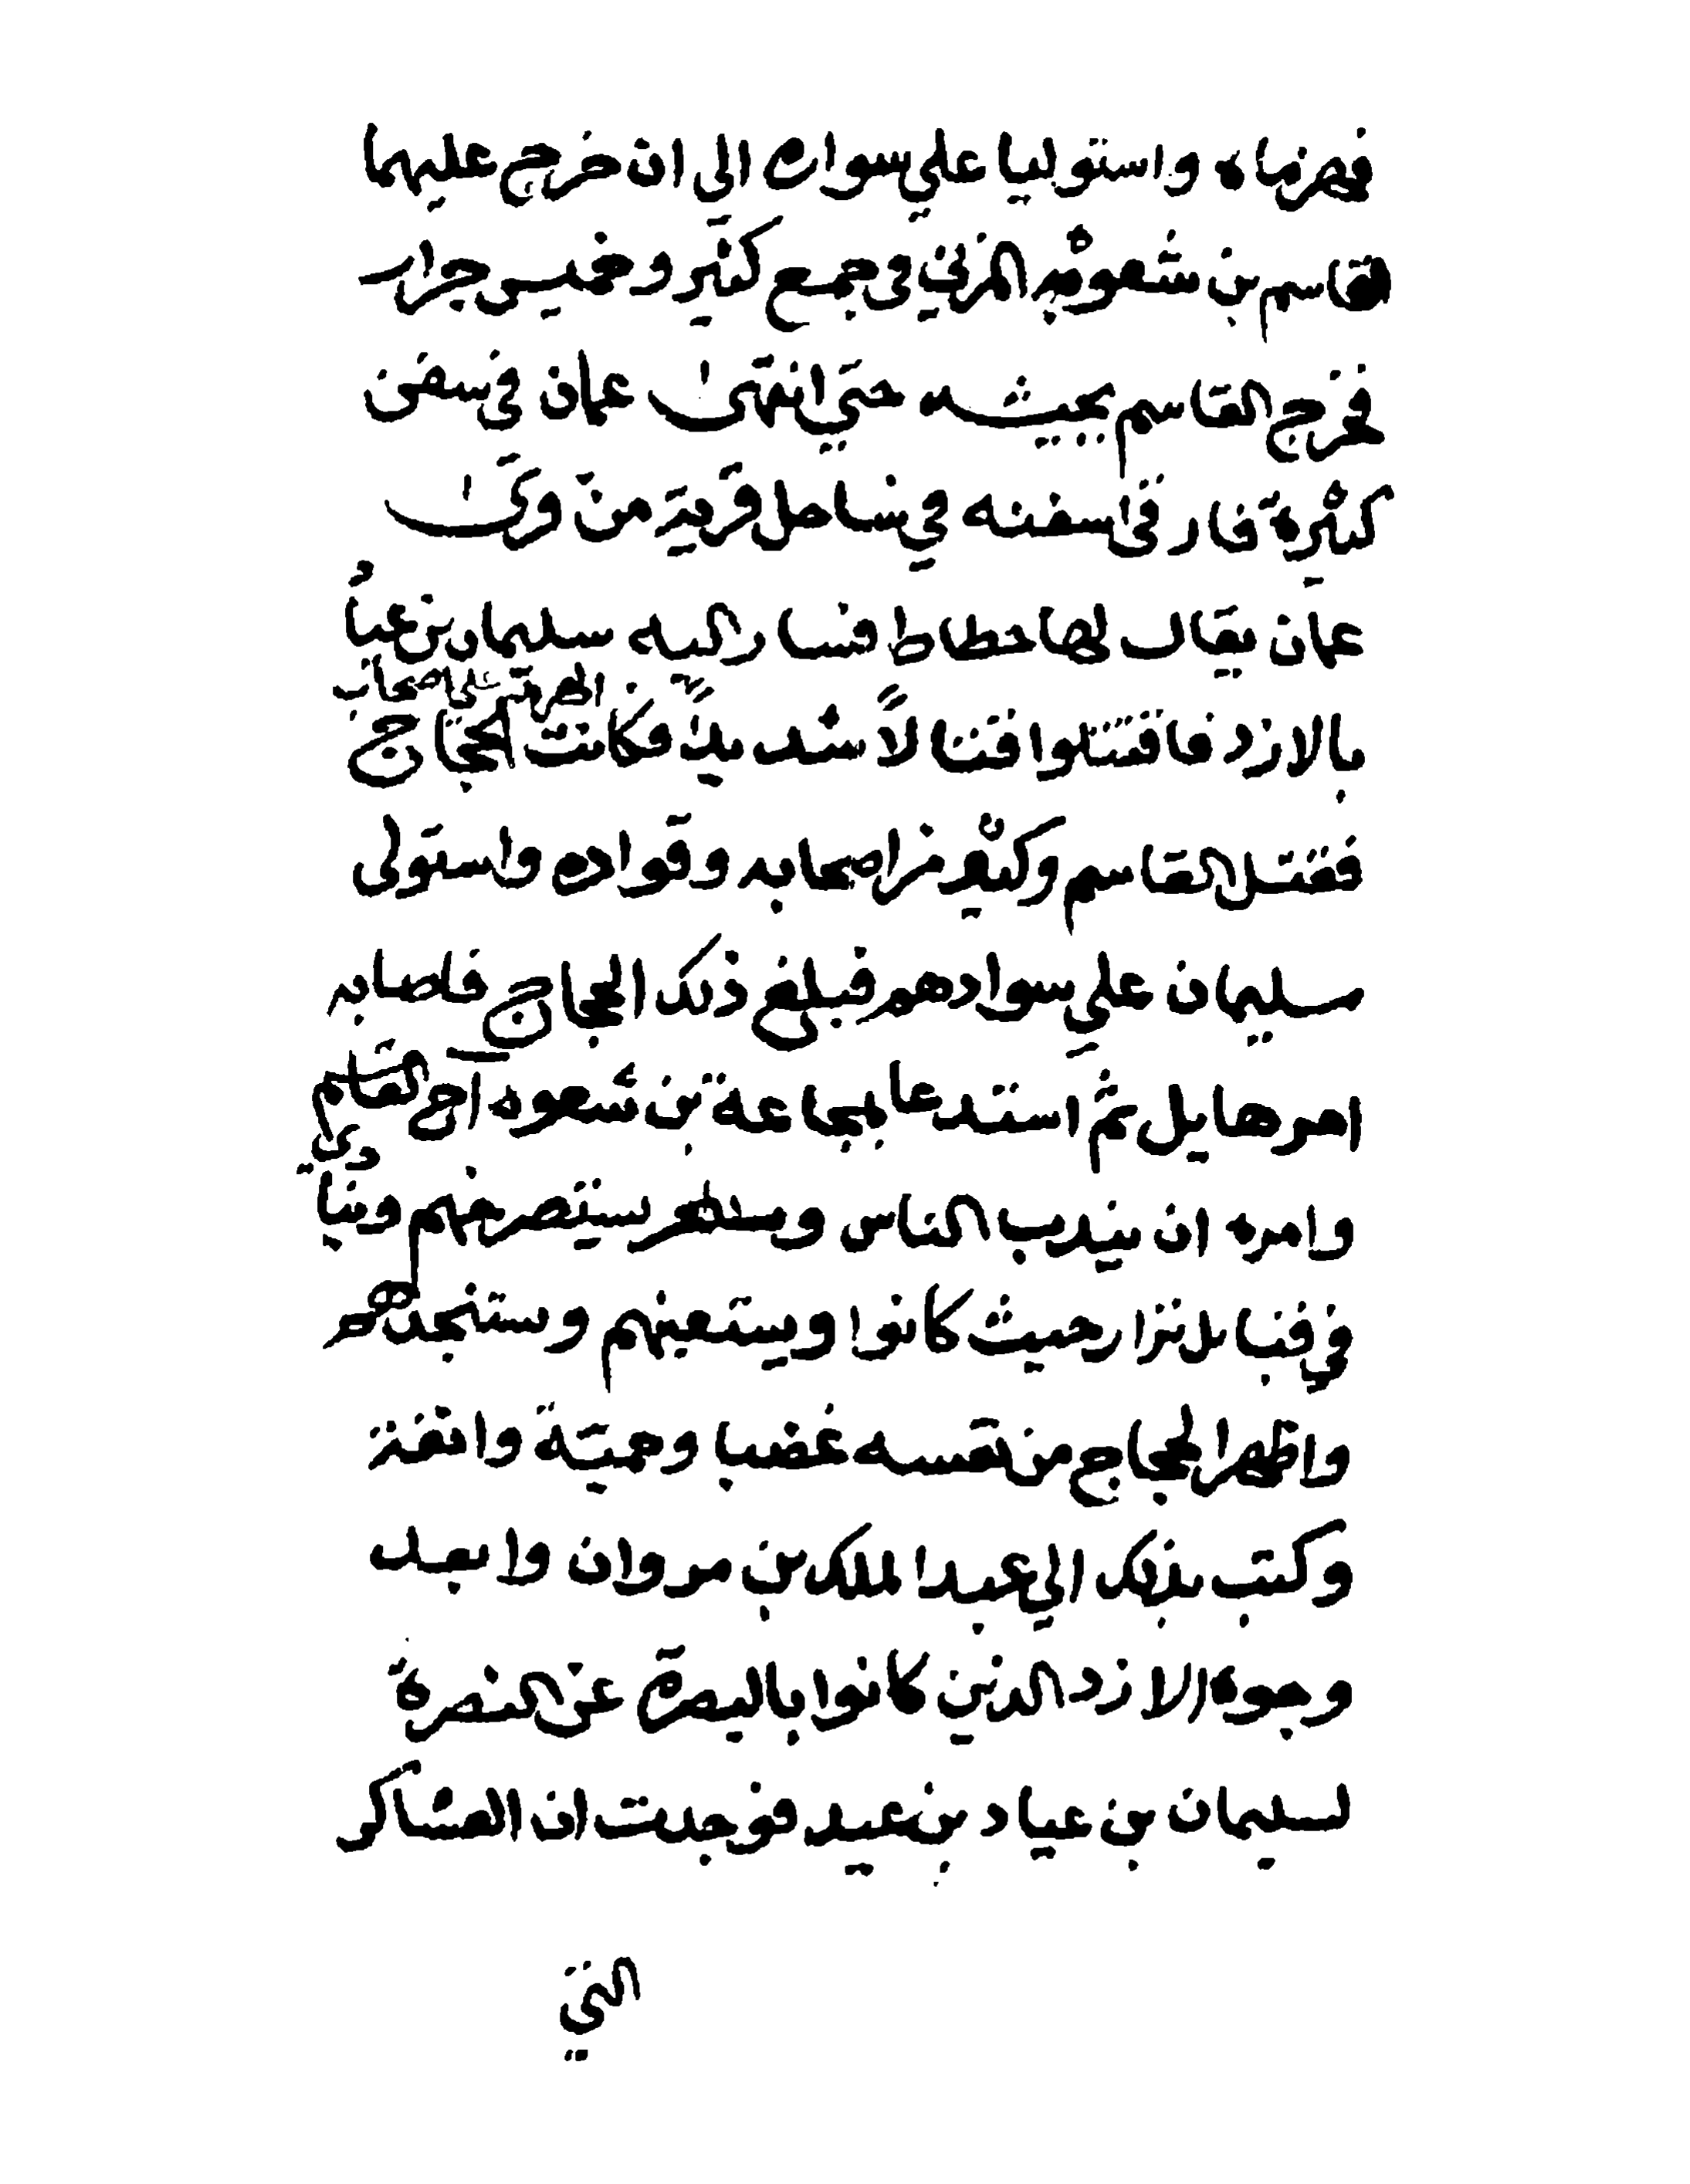 فهزماه واستوليا علي سواده الى ان خرج عليهما
القاسم بن شعوة المزني في جمع كثير وخميس جرار
فخرج القاسم بجيشه حتي انتهى عمان في سفن
كثيرة فارقى سفنه في ساحل قرية من قرى
عمان يقال لها حطاط فسار اليه سليمان بن عباد
بالازد فاقتتلوا قتالاً شديداً فكانت الهزيمة على اصحاب الحجاج
فقتل القاسم وكثير من اصحابه وقواده واستولى
سليمان علي سوادهم فبلغ ذلك الحجاج فاصابه
امر هايل ثم استدعا بمجاعة بن شعوه اخ القاسم
وامره ان يندب الناس ويستصرخهم وينادي
في قبايل نزار حيث كانوا ويستعينهم ويستنجدهم
واظهر الحجاج من نفسه غضبا وحميّة وانفة
وكتب بذلك الي عبد الملك بن مروان واقعد
وجوه الازد الذين كانوا بالبصرة عن النصرة
لسليمان بن عباد بن عبد فوجدت ان العساكر
التي